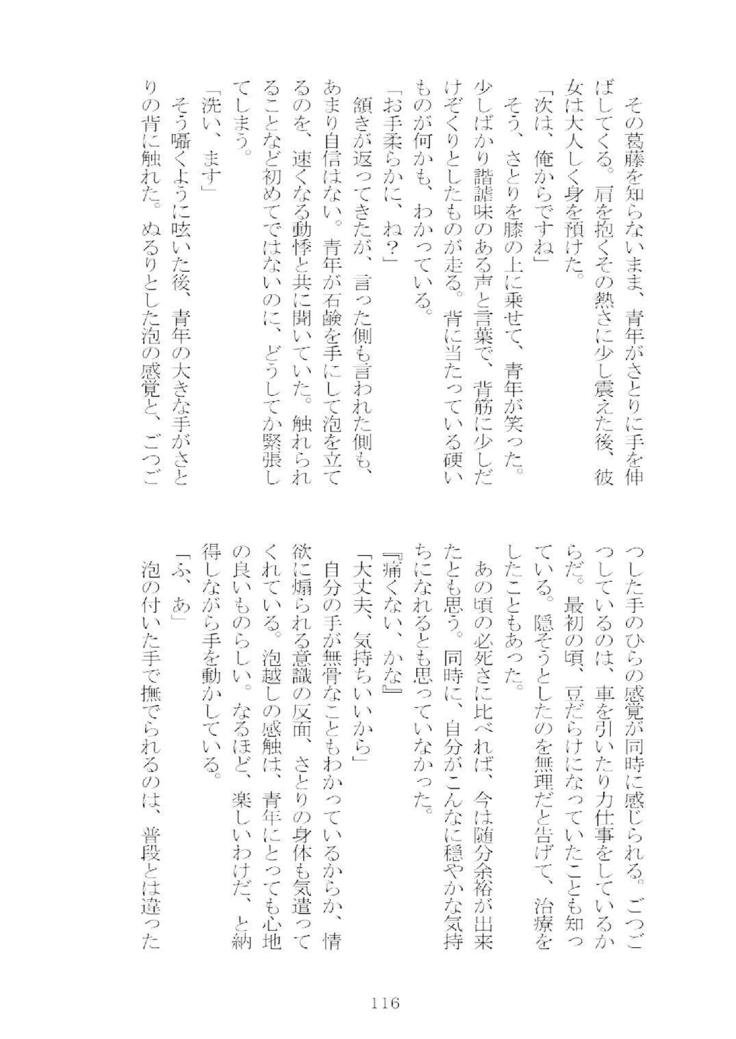 その葛藤を知らないまま、青年がさとりに手を伸
ばしてくる。肩を抱くその熱さに少し震えた後、彼
女は大人しく身を預けた。
「次は、俺からですね」
　そう、さとりを膝の上に乗せて、青年が笑った。
少しばかり諧謔味のある声と言葉で、背筋に少しだ
けぞくりとしたものが走る。背に当たっている硬い
ものが何かも、わかっている。
「お手柔らかに、ね？」
　頷きが返ってきたが、言った側も言われた側も、
あまり自信はない。青年が石鹸を手にして泡を立て
るのを、速くなる動悸と共に聞いていた。触れられ
ることなど初めてではないのに、どうしてか緊張し
てしまう。
「洗い、ます」
　そう囁くように呟いた後、青年の大きな手がさと
りの背に触れた。ぬるりとした泡の感覚と、ごつご
つした手のひらの感覚が同時に感じられる。ごつご
つしているのは、車を引いたり力仕事をしているか
らだ。最初の頃、豆だらけになっていたことも知っ
ている。隠そうとしたのを無理だと告げて、治療を
したこともあった。
　あの頃の必死さに比べれば、今は随分余裕が出来
たとも思う。同時に、自分がこんなに穏やかな気持
ちになれるとも思っていなかった。
『痛くない、かな』
「大丈夫、気持ちいいから」
　自分の手が無骨なこともわかっているからか、情
欲に煽られる意識の反面、さとりの身体も気遣って
くれている。泡越しの感触は、青年にとっても心地
の良いものらしい。なるほど、楽しいわけだ、と納
得しながら手を動かしている。
「ふ、あ」
　泡の付いた手で撫でられるのは、普段とは違った
116